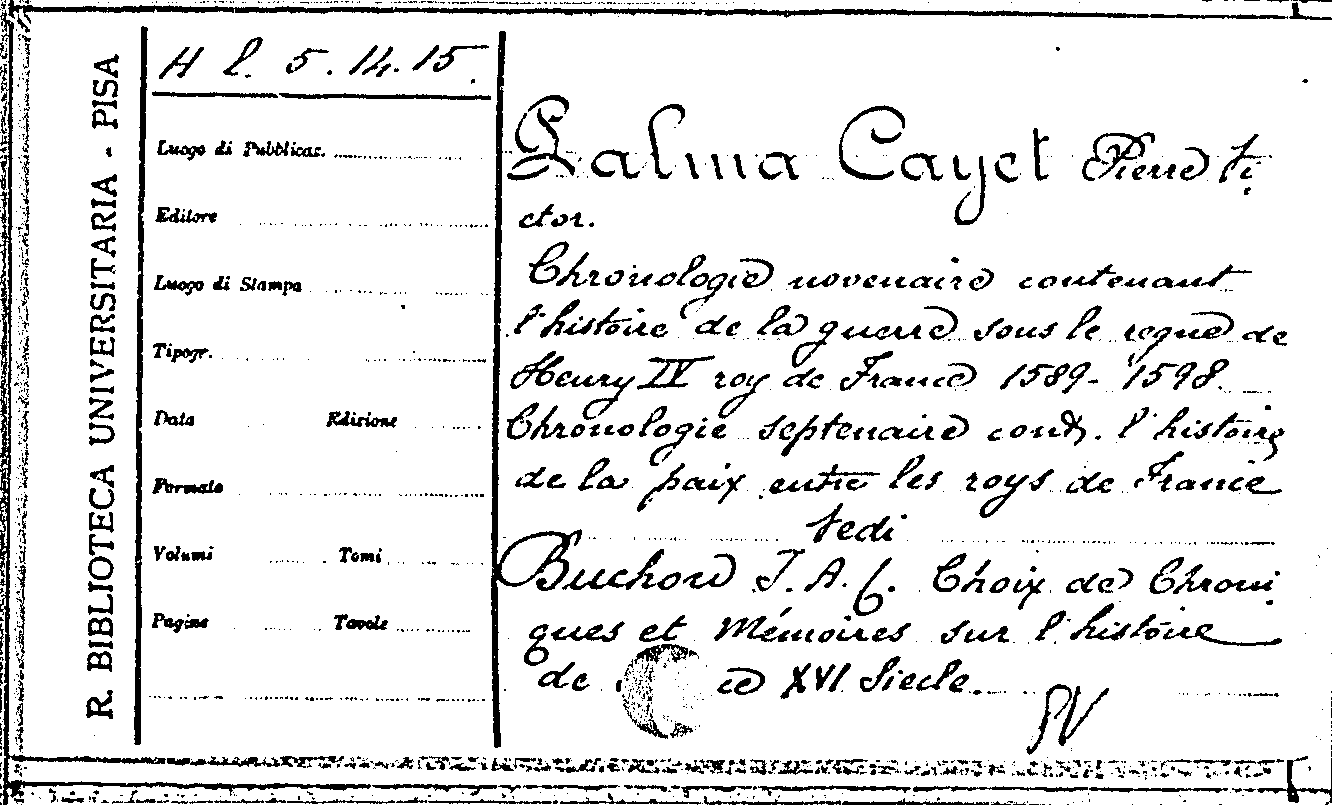 R. BIBLIOTECA UNIVERSITARIA - PISA
H l. 5. 14. 15.
Luogo di Pubblicas.
Editore
Luogo di Stampa
Tipogr.
Data Edizione
Formato
Volumi Tomi
Pagine Tavole
Palma Cayet Pierre Vi
ctor.
Chronologie novenaire contenant
l'histoire de la guerre sous le regne de
Henry IV roy de France 1589-1598.
Chronologie septenaire cont. l'histoire
de la paix entre les roys de France
Vedi
Buchon J. A. C. Choix de Chroni
ques et Mémoires sur l'histoire
de ce XVI Siecle.